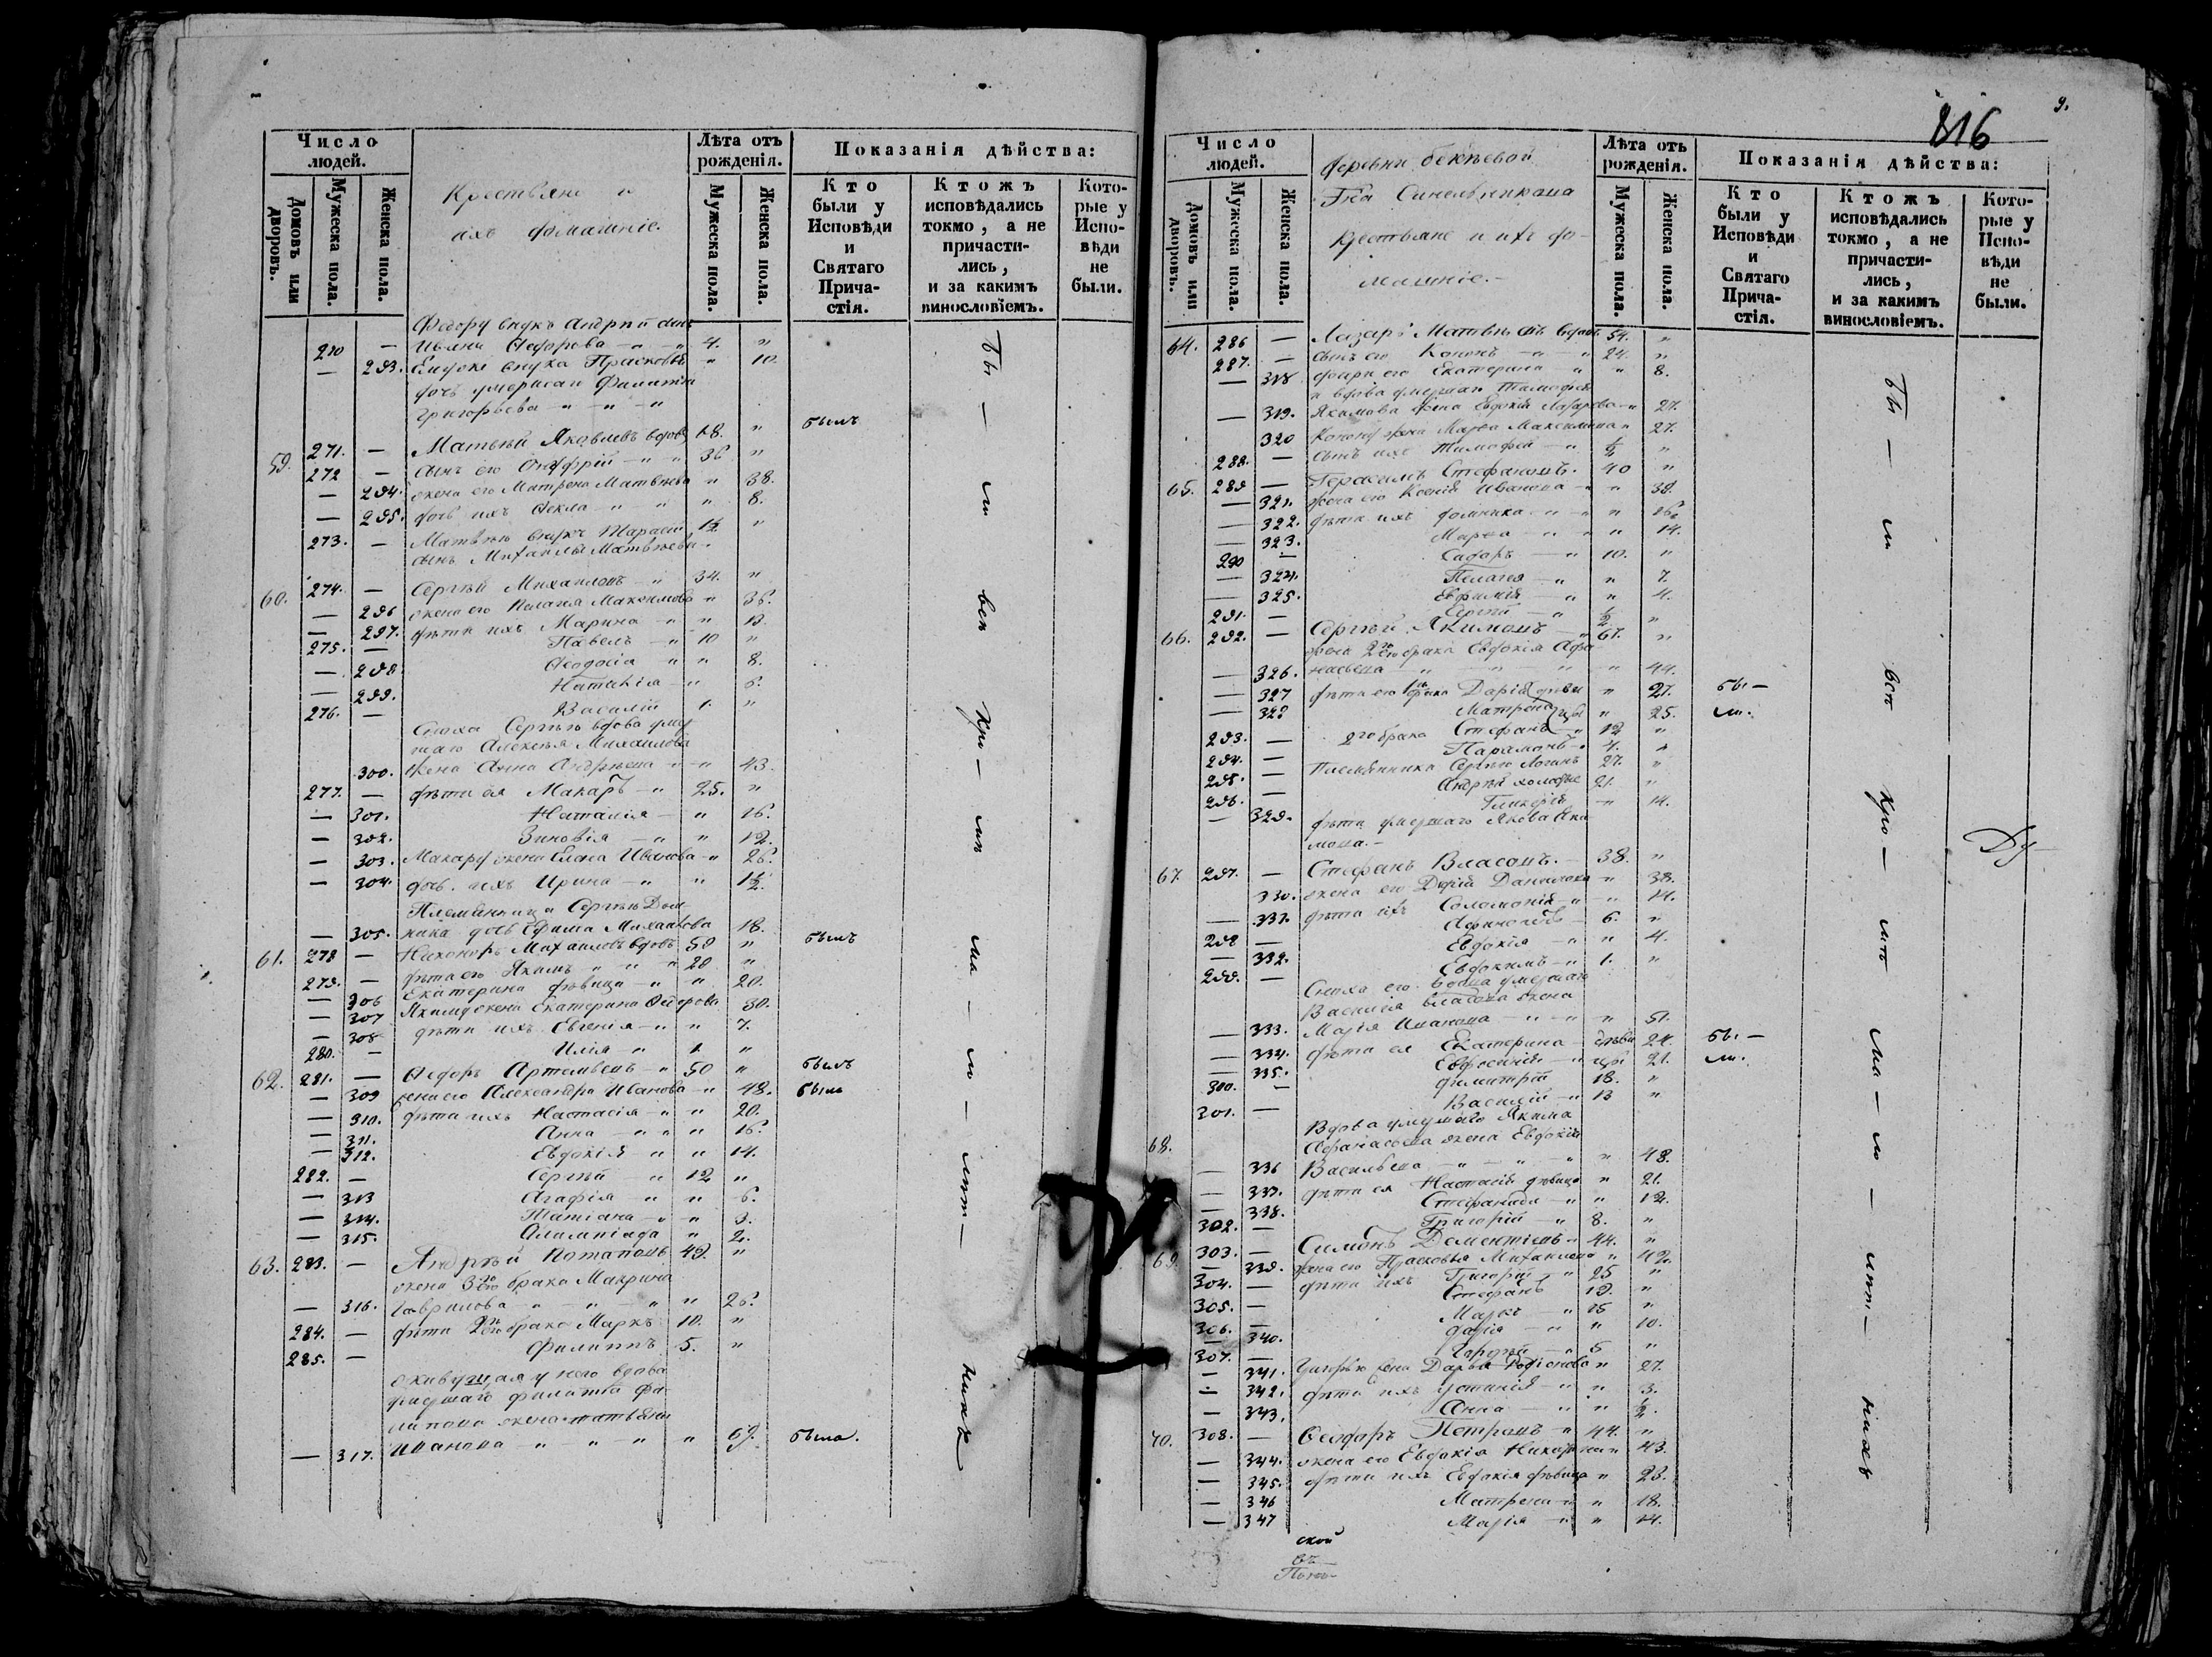 Число людей.
Домовъ или дворовъ.
Мужеска пола.
Женска пола.
Крестьяне и
ихъ домашніе.
Лѣта отъ рожденія.
Мужеска пола.
Женска пола.
Показанія дѣйства:
Кто были у Исповѣди и Святаго Прича-стія.
Ктожъ исповѣдались токмо, а не причасти-лись, и за какимъ винословіемъ.
Кото-рые у Испо-вѣди не были.
Федору внукъ Андрей сынъ
270 — Ивана Федорова — " 4. "
— 293. внука Прасковья " 10.
дочь умершаго Филиппа
Григорьева — " — " — "
59. 271. — Матвѣй Яковлевъ вдовъ 68. " былъ
272 — сынъ его " 36 "
— 294. жена его Матрена Матвѣева " 38.
— 295. дочь ихъ Ѳекла — " — " " 8.
273. — Матвѣю внукъ Тарасій 1½ "
сынъ Михаилы Матвѣева.
60. 274. — Сергѣй Михаиловъ — " 34. "
— 296 жена его Пелагея Максимова " 36.
— 297. дѣти ихъ Марина — " " 13.
275. — Павелъ — " 10 "
— 298 Ѳеодосія " " 8.
— 299. Наталія — " 6.
276. — Василій 1. "
Сноха Сергѣю вдова умер
шаго Алексѣя Михаилова
300. жена Анна Андрѣева — " 43.
277. — дѣти ея Макаръ — " 25. "
— 301. Наталія — " 16.
— 302. Зиновія — " " 12.
— 303. Макару жена Елена Иванова " 26.
— 304. дочь ихъ Ирина — " " 1½.
Племянница Сергѣю
— 305. дочь Ефима Михаилова 18.
61. 278 — Никоноръ Михаиловъ вдовъ 59 " былъ
279. — дѣти его Якимъ " " " 20 "
— 306 Екатерина дѣвица — " " 20.
— 307 Якиму жена Екатерина Федорова 30.
— 308 дѣти ихъ Евгенія — " " 7.
280. — Илія — " 1. "
62. 281. — Ѳедоръ Артемьевъ — " 50 " былъ
— 309 жена его Александра Иванова — " 48. была
— 310. дѣти ихъ Настасія — " " 20.
— 311. Анна — " " " 16.
— 312. Евдокія — " " 14.
282. — Сергѣй — " 12 "
— 313 Агафія — " " 6.
— 314. Татіана — " " 3.
— 315. Олимпіада " 2.
63. 283. — Андрѣй Потаповъ 49. "
жена 3го брака Макрина
— 316. Гаврилова — " — " — " " 26.
284. — дѣти 2го брака Маркъ 10. "
285. — Филиппъ 5. "
живущая у него вдова
умершаго Филиппа Фи
липова жена Татьяна
— 317. Иванова — " — " — " " 69. была.
Бы — ли всѣ кро — мѣ ма — ло — лѣт — нихъ
816
9.
Число людей.
Домовъ или дворовъ.
Мужеска пола.
Женска пола.
Деревни
Гна Синельникова
Крестьяне и ихъ до-
машніе. —
Лѣта отъ рожденія.
Мужеска пола.
Женска пола.
Показанія дѣйства:
Кто были у Исповѣди и Святаго Прича-стія.
Ктожъ исповѣдались токмо, а не причасти-лись, и за какимъ винословіемъ.
Кото-рые у Испо-вѣди не были.
64. 286 — Лазарь Матвѣевъ вдовъ 54. "
287. — сынъ его Кононъ — " — " 24. "
— 318 дочь его Екатерина " " 8.
и вдова умершаго Тимофея
— 319. Якимова жена Евдокія Лазарева — " 27.
320 Конону жена Марѳа Максимова " 27.
288. — сынъ ихъ Тимофей — " ½ "
65. 289 — Герасимъ Стефановъ. 40 "
— 321. жена его Ксенія Иванова — " 38.
— 322. дѣти ихъ Домника — " — " 16.
— 323. Марѳа — " " " 14.
290 — — " 10. "
— 324. Пелагея — " " 7.
— 325. Евфимія — " " 4.
291. — Сергѣй — " ½ "
66. 292. — Сергѣй Якимовъ — " 67. "
жена 2го брака Евдокія Афа
— 326. насьева — " " 44.
— 327 дѣти его 1го брака Дарія дѣви " 27. бы —
— 328 Матрена цы " 25. ли.
293. — 2го брака Стефанъ — " 12 "
294. — Парамонъ — " 4. "
295. — Племянники Сергѣю Логинъ 27. "
296. — Андрѣй холостые 21. "
— 329. Гликерія — " 14.
дѣти умершаго Якова Яки
мова. —
67. 297. — Стефанъ Власовъ. — 38. "
330. жена его Дарія Данилова " 38.
— 331. дѣти ихъ Соломонія " — 14.
298 — 6. "
— 332. Евдокія — " " 4.
299. — Евдокимъ — " 1. "
Сноха его вдова умершаго
Василія Власова жена
— 333. Марія Иванова — " — " " 51.
— 334. дѣти ея Екатерина — дѣви 24. бы —
— 335. Евфросинія — " цы 21. ли.
300. — Димитрій 18. "
301. — Василій — " 13 "
68. Вдова умершаго Якима
Афанасьева жена Евдокія
— 336 Васильева — " — " — " " 48.
— 337. дѣти ея Настасія дѣвица " 21.
— 338. Стефанида — " " 12.
302. — Григорій — " 8. "
69. 303. — Симонъ Дементіевъ " 44. "
— 339. жена его Прасковья Михаилова " 42.
304. — дѣти ихъ Григорій — " 25 "
305. — Стефанъ 19. "
306. — Маркъ — " 15 "
— 340. Дарія — " " 10.
307. — Сергѣй — " 5 "
— 341. Григорью жена Дарья Родіонова " 27.
— 342. дѣти ихъ Устинія — " " 3.
— 343. Анна — " " ½.
70. 308. — Ѳеодоръ Петровъ — " 44. "
— 344. жена его Евдокія " 43.
— 345. дѣти ихъ Евдокія дѣвица " 23.
— 346 Матрена — " " 18.
— 347 Марія — " " 14.
Бы — ли всѣ кро — мѣ ма — ло — лѣт — нихъ
ской